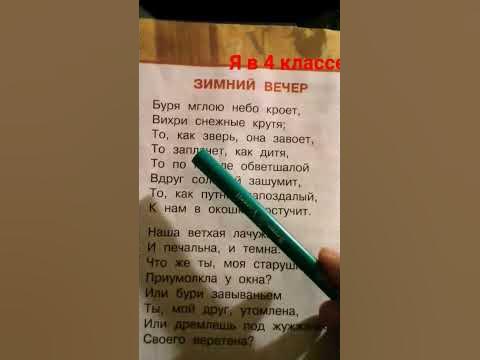 Я в 4 классе
ЗИМНИЙ ВЕЧЕР
Буря мглою небо кроет,
Вихри снежные крутя;
То, как зверь, она завоет,
То заплачет, как дитя,
То по обветшалой
Вдруг зашумит,
То, как запоздалый,
К нам в окошко застучит.
Наша ветхая
И печальна, и темна.
Что же ты, моя
Приумолкла у окна?
Или бури завываньем
Ты, мой друг, утомлена,
Или дремлешь под
Своего веретена?